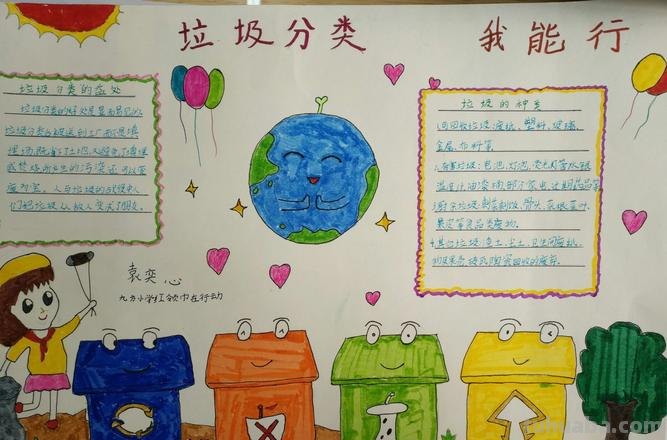 垃圾分类 我能行
垃圾分类的益处
垃圾分类的好处是显而易见的。
垃圾分类后被送到工厂而不是填
埋场,既省下土地,又避免了填埋
或焚烧所产生的污染,还可以变
废为宝。人与垃圾的战役中人
们把垃圾从敌人变成了朋友。
垃圾的种类
1.可回收垃圾:废纸、塑料、玻璃、
金属、布料等。
2.有害垃圾:电池、灯泡、
过期药品等
3.厨余垃圾:剩菜剩饭、骨头、菜根菜叶、
果皮等食品类废物。
4.其它垃圾:渣土、卫生间废纸、
袁奕心
九方小学红领巾在行动